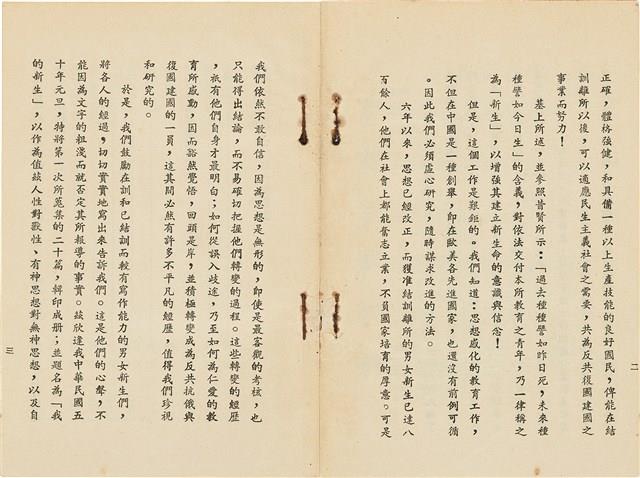 正確，體格強健，和具備一種以上生產技能的良好國民，俾能在結
訓離所以後，可以適應民生主義社會之需要，共為反共復國建國之
事業而努力！
基上所述，並參照昔賢所示：「過去種種譬如昨日死，未來種
種譬如今日生」的含義，對依法交付本所教育之青年，乃一律稱之
為「新生」，以增強其建立新生命的意識與信念！
但是，這個工作是艱鉅的。我們知道：思想感化的教育工作，
不但在中國是一種創舉，即在歐美各先進國家，也還沒有前例可循
。因此我們必須虛心研究，隨時謀求改進的方法。
六年以來，思想已經改正，而獲准結訓離所的男女新生已達八
百餘人，他們在社會上都能奮志立業，不負國家培育的厚意。可是
二
我們依然不敢自信，因為思想是無形的，即使是最客觀的考核，也
只能得出結論，而不易確切把握他們轉變的過程。這些轉變的經歷
，祇有他們自身才最明白；如何從誤入歧途，乃至如何為仁愛的教
育所感動，因而豁然覺悟，回頭是岸，並積極轉變成為反共抗俄與
復國建國的一員，這其間必然有許多不平凡的經歷，值得我們珍視
和研究的。
於是，我們鼓勵在訓和已結訓而較有寫作能力的男女新生們，
將各人的經過，切切實實地寫出來告訴我們。這是他們的心聲，不
能因為文字的粗淺而就否定其所報導的事實。茲欣逢我中華民國五
十年元旦，特將第一次所蒐集的二十篇，輯印成冊；並題名為「我
的新生」，以作為值茲人性對獸性、有神思想對無神思想，以及自
三